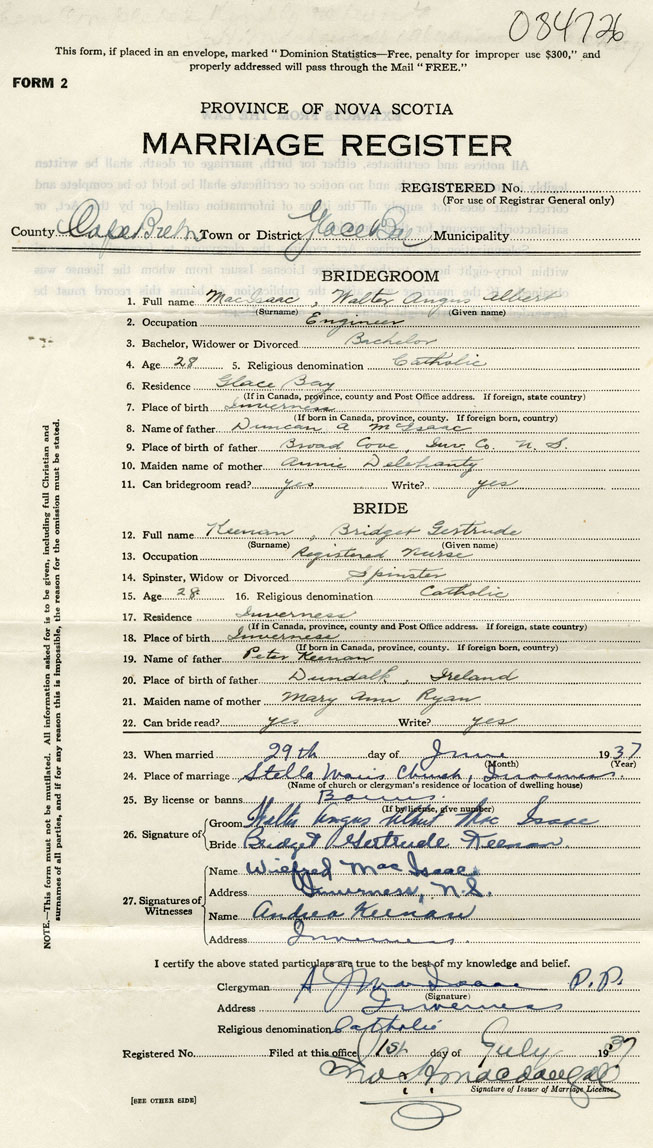 034726
This form, if placed in an envelope, marked "Dominion Statistics—Free, penalty for improper use $300," and
properly addressed will pass through the Mail "FREE."
FORM 2
PROVINCE OF NOVA SCOTIA
MARRIAGE REGISTER
REGISTERED No.
(For use of Registrar General only)
County Cape Breton Town or District Glace Bay Municipality
BRIDEGROOM
1. Full name MacIsaac, Walter Angus Albert
(Surname) (Given name)
2. Occupation Engineer
3. Bachelor, Widower or Divorced Bachelor
4. Age 28 5. Religious denomination Catholic
6. Residence Glace Bay
(If in Canada, province, county and Post Office address. If foreign, state country)
7. Place of birth Inverness
(If born in Canada, province, county. If foreign born, country)
8. Name of father Duncan A McIsaac
9. Place of birth of father Broad Cove, Inv. Co. N. S.
10. Maiden name of mother Annie Delehanty
11. Can bridegroom read? yes Write? yes
BRIDE
12. Full name Keenan, Bridget Gertrude
(Surname) (Given name)
13. Occupation Registered Nurse
14. Spinster, Widow or Divorced Spinster
15. Age 28 16. Religious denomination Catholic
17. Residence Inverness
(If in Canada, province, county and Post Office address. If foreign, state country)
18. Place of birth Inverness
(If born in Canada, province, county. If foreign born, country)
19. Name of father Peter Keenan
20. Place of birth of father Dundalk, Ireland
21. Maiden name of mother Mary Ann Ryan
22. Can bride read? yes Write? yes
23. When married 29th day of June 1937
(Month) (Year)
24. Place of marriage Stella Maris Church, Inverness.
(Name of church or clergyman's residence or location of dwelling house)
25. By license or banns Banns.
(If by license, give number)
26. Signature of Groom Walter Angus Albert Mac Isaac
Bride Bridget Gertrude Keenan
27. Signatures of Witnesses
Name Winifred MacIsaac
Address Inverness, N.S.
Name Andrea Keenan
Address Inverness.
I certify the above stated particulars are true to the best of my knowledge and belief.
Clergyman A J MacIsaac P.P.
(Signature)
Address Inverness
Religious denomination Catholic
Registered No. Filed at this office 1st day of July 1937
Macdougall
Signature of Issuer of Marriage License.
[SEE OTHER SIDE]
NOTE.—This form must not be mutilated. All information asked for is to be given, including full Christian and
surnames of all parties, and if for any reason this is impossible, the reason for the omission must be stated.